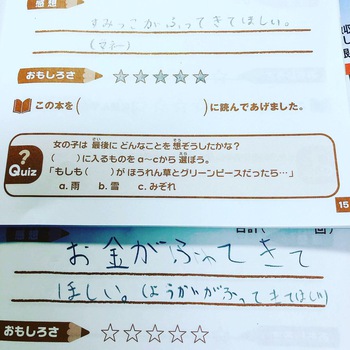 感想
すみっこがふってきてほしい。
(マネー)
おもしろさ ☆☆☆☆☆
この本を( )に読んであげました。
? Quiz
女の子は 最後に どんなことを 想ぞうしたかな?
( )に入るものを a~cから 選ぼう。
「もしも( )が ほうれん草とグリーンピースだったら…」
a. 雨 b. 雪 c. みぞれ
15
お金がふってきて
ほしい。(ようかいがふってきてほしい)
おもしろさ ☆☆☆☆☆